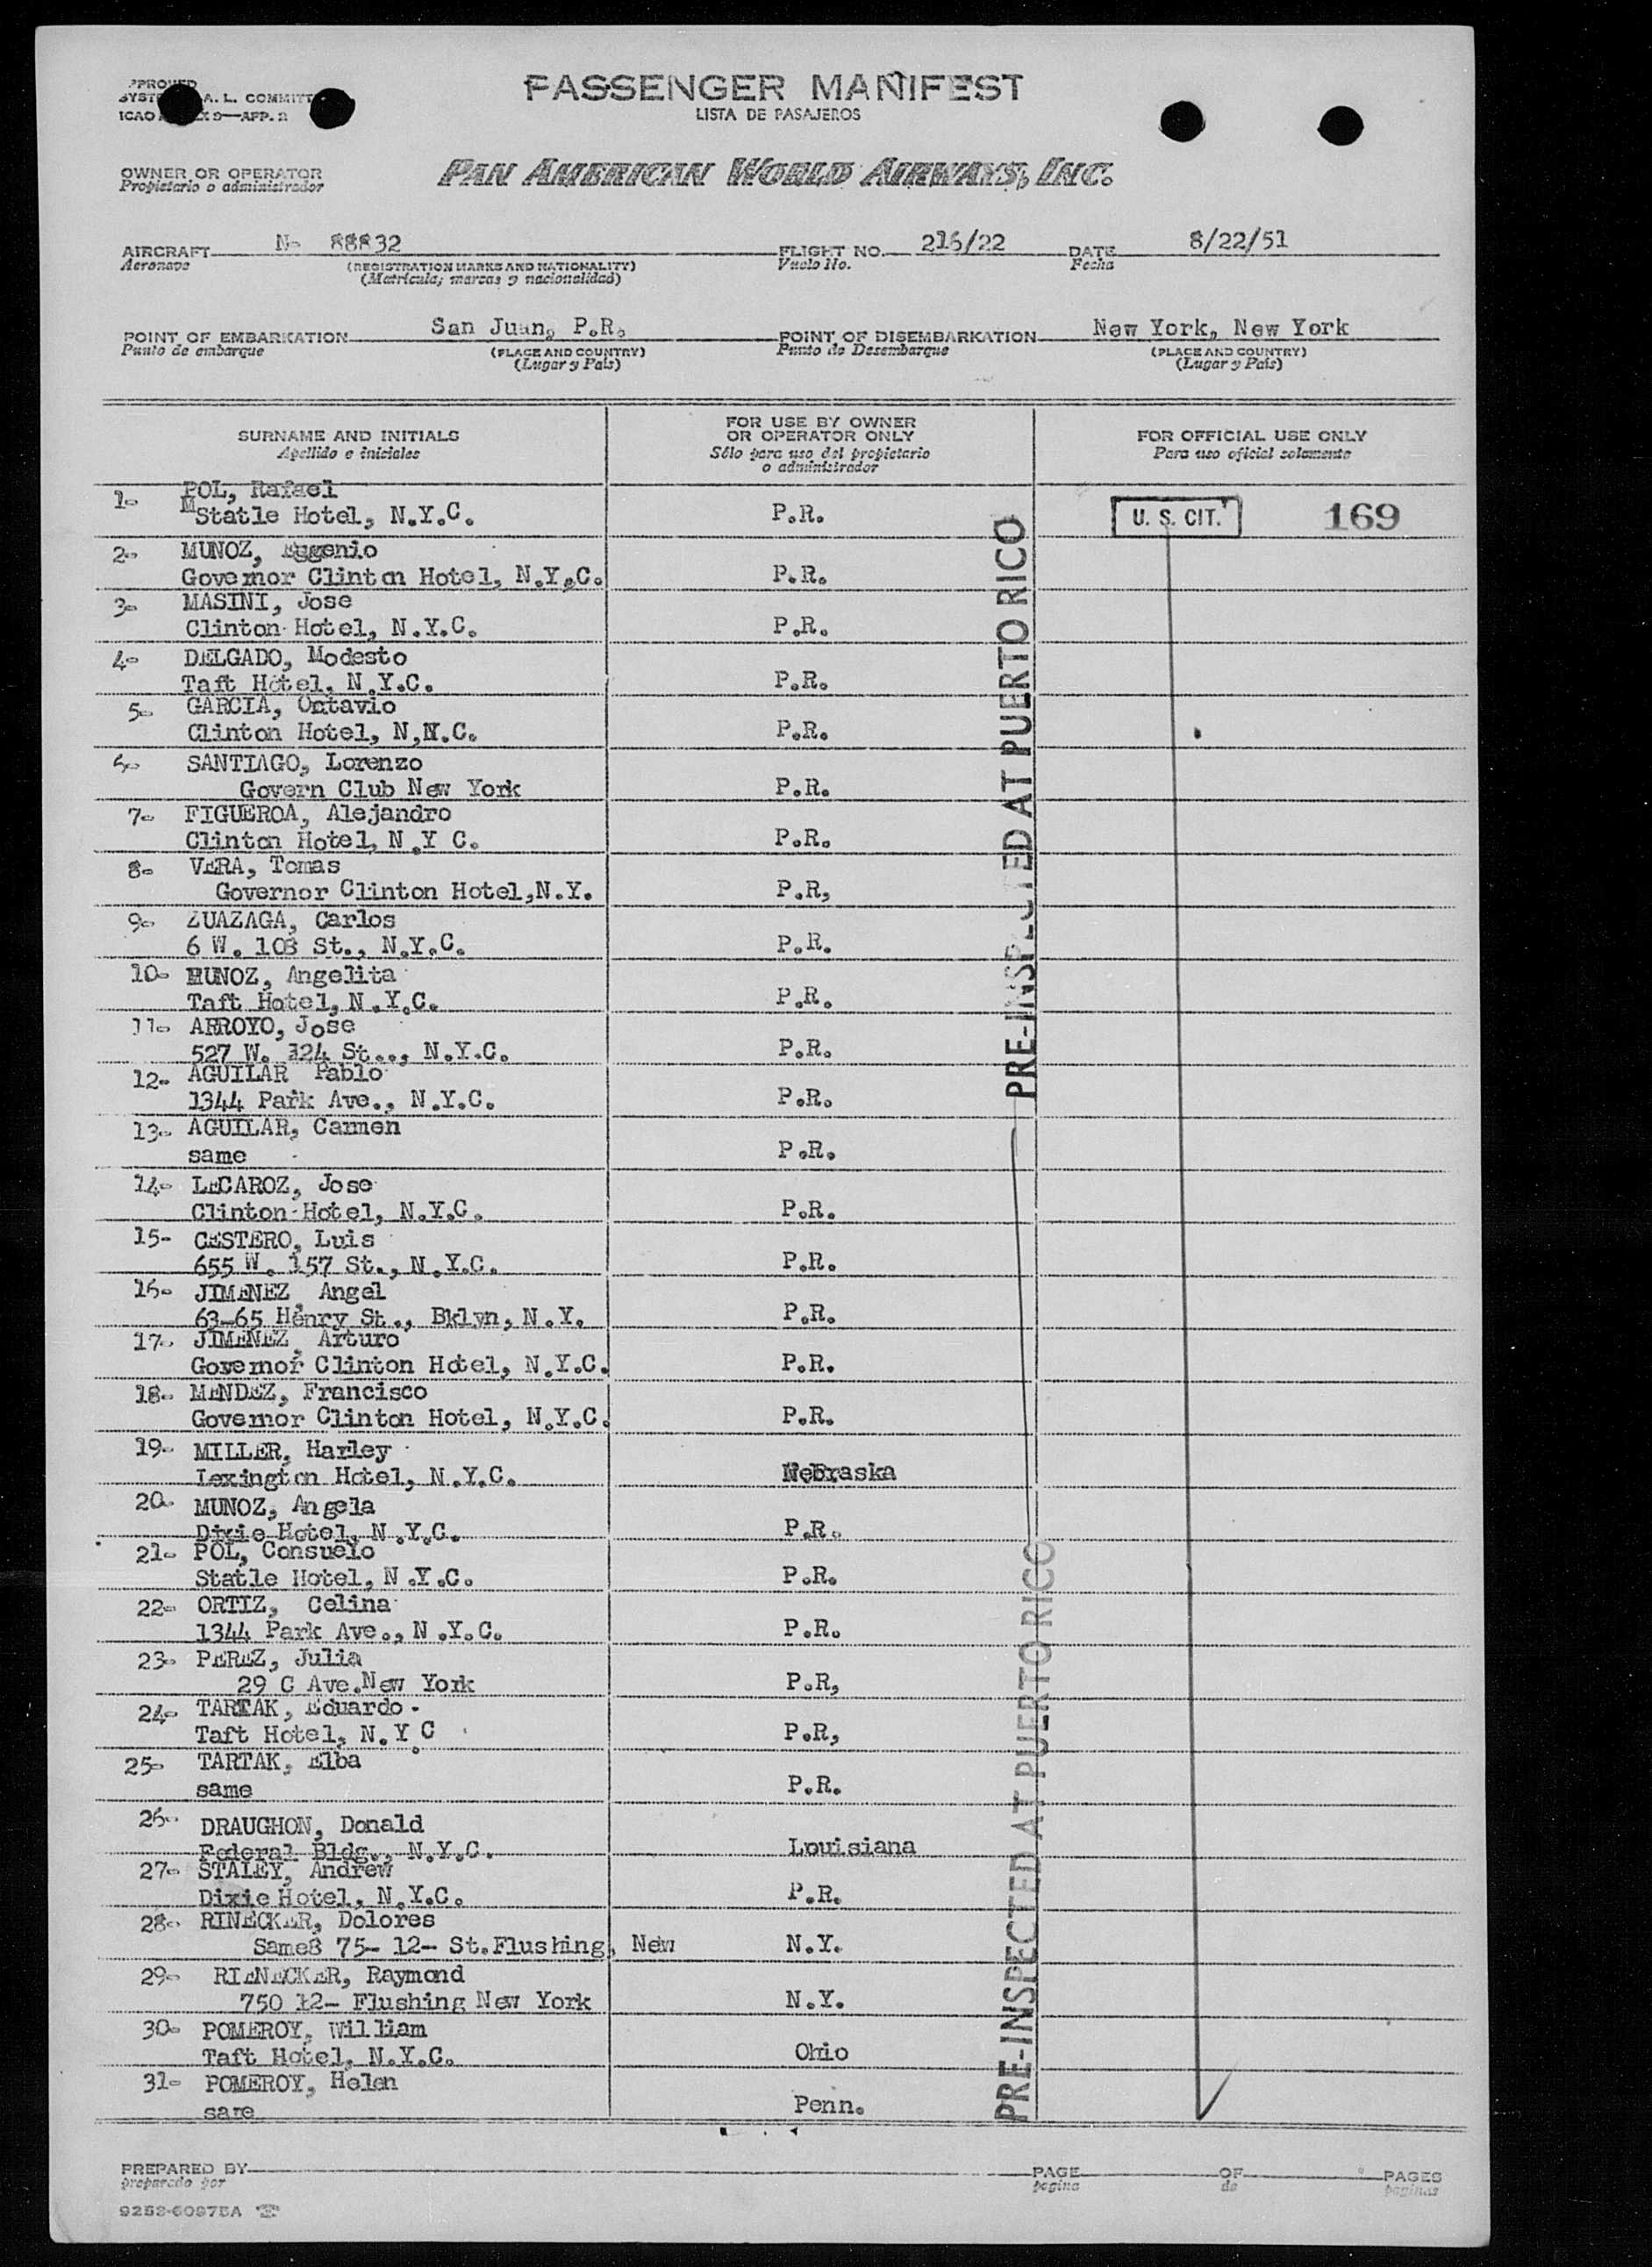 PASSENGER MANIFEST
LISTA DE PASAJEROS
A. L. COMMITT
ICAO 9—APP. 2
OWNER OR OPERATOR
Propietario o administrador
PAN AMERICAN WORLD AIRWAYS, INC.
AIRCRAFT N- 88832 FLIGHT NO. 216/22 DATE 8/22/51
Aeronave (REGISTRATION MARKS AND NATIONALITY) Vuelo No. Fecha
(Matrícula; marcas y nacionalidad)
POINT OF EMBARKATION San Juan, P.R. POINT OF DISEMBARKATION New York, New York
Punto de embarque (PLACE AND COUNTRY) Punto de Desembarque (PLACE AND COUNTRY)
(Lugar y País) (Lugar y País)
SURNAME AND INITIALS
Apellido e iniciales
FOR USE BY OWNER
OR OPERATOR ONLY
Sólo para uso del propietario
o administrador
FOR OFFICIAL USE ONLY
Para uso oficial solamente
1- POL, Rafael
Statle Hotel, N.Y.C. P.R. U. S. CIT. 169
2- MUNOZ, Eugenio
Governor Clinton Hotel, N.Y.C. P.R.
3- MASINI, Jose
Clinton Hotel, N.Y.C. P.R.
4- DELGADO, Modesto
Taft Hotel, N.Y.C. P.R.
5- GARCIA, Octavio
Clinton Hotel, N.Y.C. P.R.
6- SANTIAGO, Lorenzo
Govern Club New York P.R.
7- FIGUEROA, Alejandro
Clinton Hotel, N.Y C. P.R.
8- VERA, Tomas
Governor Clinton Hotel,N.Y. P.R,
9- ZUAZAGA, Carlos
6 W. 108 St., N.Y.C. P.R.
10- MUNOZ, Angelita
Taft Hotel, N.Y.C. P.R.
11- ARROYO, Jose
527 W. 124 St.., N.Y.C. P.R.
12- AGUILAR Pablo
1344 Park Ave., N.Y.C. P.R.
13- AGUILAR, Carmen
same P.R.
14- LECAROZ, Jose
Clinton Hotel, N.Y.C. P.R.
15- CESTERO, Luis
655 W. 157 St., N.Y.C. P.R.
16- JIMENEZ, Angel
63-65 Henry St., Bklyn, N.Y. P.R.
17- JIMENEZ, Arturo
Governor Clinton Hotel, N.Y.C. P.R.
18- MENDEZ, Francisco
Governor Clinton Hotel, N.Y.C. P.R.
19- MILLER, Harley
Lexington Hotel, N.Y.C. Nebraska
20- MUNOZ, Angela
Dixie Hotel, N.Y.C. P.R.
21- POL, Consuelo
Statle Hotel, N.Y.C. P.R.
22- ORTIZ, Celina
1344 Park Ave., N.Y.C. P.R.
23- PEREZ, Julia
29 C Ave.New York P.R,
24- TARTAK, Eduardo
Taft Hotel, N.Y C P.R,
25- TARTAK, Elba
same P.R.
26- DRAUGHON, Donald
Federal Bldg., N.Y.C. Louisiana
27- STALEY, Andrew
Dixie Hotel, N.Y.C. P.R.
28- RINECKER, Dolores
Same8 75- 12- St.Flushing, New N.Y.
29- RIENECKER, Raymond
750 12- Flushing New York N.Y.
30- POMEROY, William
Taft Hotel, N.Y.C. Ohio
31- POMEROY, Helen
same Penn.
PRE-INSPECTED AT PUERTO RICO
PRE-INSPECTED AT PUERTO RICO
PREPARED BY PAGE OF PAGES
preparado por página de páginas
9253-60975A